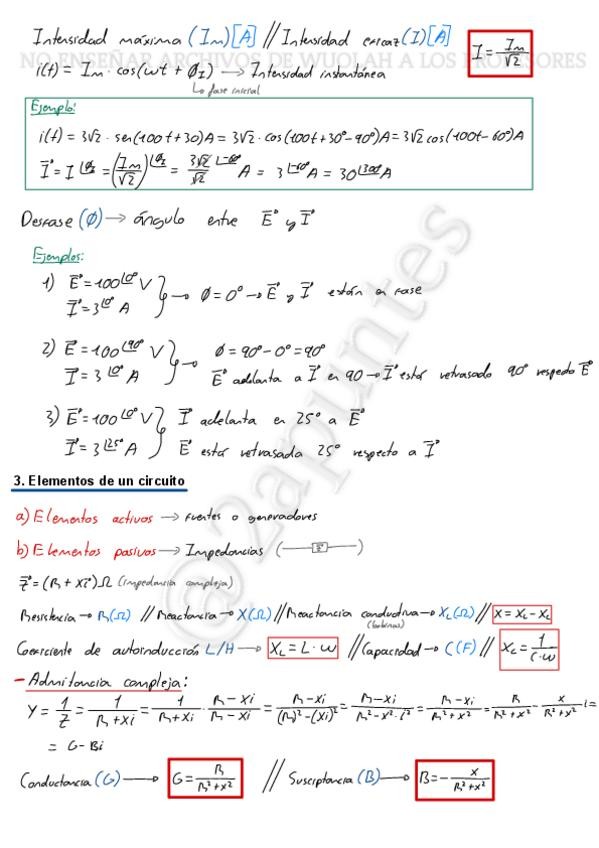 Intensidad máxima (Im)[A] // Intensidad eficaz (I)[A] I = Im/√2
NO ENSEÑAR ARCHIVOS DE WUOLAH A LOS PROFESORES
i(t) = Im · cos(wt + ØI) → Intensidad instantánea
↳ fase inicial
Ejemplo:
i(t) = 3√2 · sen(100t+30)A = 3√2 · cos(100t+30°-90°)A = 3√2 cos(100t-60°)A
I = I∠ØI = (Im/√2)∠ØI = 3√2/√2 ∠-60° A = 3∠-60° A = 30∠300° A
Desfase (Ø) → ángulo entre E y I
Ejemplos:
1) E = 100∠0° V
I = 3∠0° A
→ Ø = 0° → E y I están en fase
2) E = 100∠90° V
I = 3∠0° A
→ Ø = 90° - 0° = 90°
E adelanta a I en 90 → I estár retrasado 90° respecto E
3) E = 100∠0° V
I = 3∠25° A
I adelanta en 25° a E
E estár retrasada 25° respecto a I
@2apuntes
3. Elementos de un circuito
a) Elementos activos → fuentes o generadores
b) Elementos pasivos → Impedancias ( Z )
Z = (R + Xi)Ω (impedancia compleja)
Resistencia → R(Ω) // Reactancia → X(Ω) // Reactancia conductiva → XL(Ω) // X = XL - XC
(bobinas)
Coeficiente de autoinducción L/H → XL = L · w // Capacidad → C(F) // XC = 1/(C·w)
- Admitancia compleja:
Y = 1/Z = 1/(R+Xi) = 1/(R+Xi) · (R-Xi)/(R-Xi) = (R-Xi)/((R)²-(Xi)²) = (R-Xi)/(R²-X²·i²) = (R-Xi)/(R²+X²) = R/(R²+X²) - X/(R²+X²) i =
= G - Bi
Conductancia (G) → G = R/(R²+X²) // Susceptancia (B) → B = - X/(R²+X²)